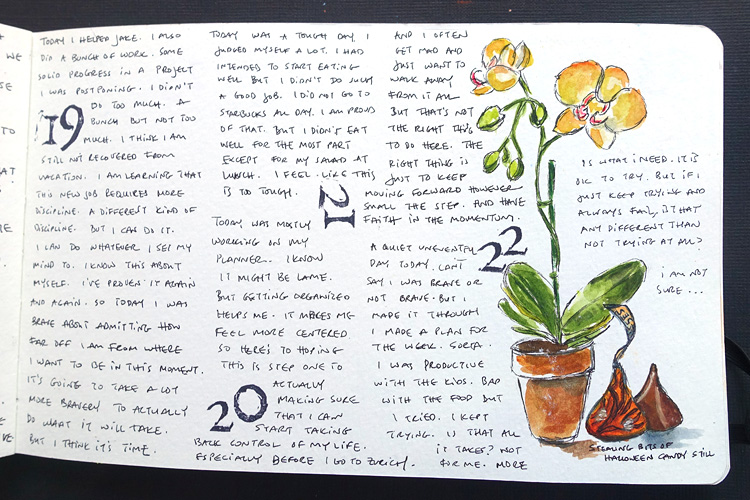 WE
SE
TO
AT
VE
TODAY I HELPED JAKE. I ALSO
DID A BUNCH OF WORK. SOME
SOLID PROGRESS IN A PROJECT
I WAS POSTPONING. I DIDN'T
DO TOO MUCH. A
BUNCH BUT NOT TOO
19
MUCH. I THINK I AM
STILL NOT RECOVERED FROM
VACATION. I AM LEARNING THAT
THIS NEW JOB REQUIRES MORE
DISCIPLINE. A DIFFERENT KIND OF
DISCIPLINE. BUT I CAN DO IT.
I CAN DO WHATEVER I SET MY
MIND TO. I KNOW THIS ABOUT
MYSELF. I'VE PROVEN IT AGAIN
AND AGAIN. SO TODAY I WAS
BRAVE ABOUT ADMITTING HOW
FAR OFF I AM FROM WHERE
I WANT TO BE IN THIS MOMENT.
IT'S GOING TO TAKE A LOT
MORE BRAVERY TO ACTUALLY
DO WHAT IT WILL TAKE.
BUT I THINK IT'S TIME.
TODAY WAS A TOUGH DAY. I
JUDGED MYSELF A LOT. I HAD
INTENDED TO START EATING
WELL BUT I DIDN'T DO SUCH
A GOOD JOB. I DID NOT GO TO
STARBUCKS ALL DAY. I AM PROUD
OF THAT. BUT I DIDN'T EAT
WELL FOR THE MOST PART
EXCEPT FOR MY SALAD AT
LUNCH. I FEEL LIKE THIS
IS TOO TOUGH.
21
TODAY WAS MOSTLY
WORKING ON MY
PLANNER. I KNOW
IT MIGHT BE LAME.
BUT GETTING ORGANIZED
HELPS ME. IT MAKES ME
FEEL MORE CENTERED.
SO HERE'S TO HOPING
THIS IS STEP ONE TO
ACTUALLY
MAKING SURE
20
THAT I CAN
START TAKING
BACK CONTROL OF MY LIFE.
ESPECIALLY BEFORE I GO TO ZURICH.
AND I OFTEN
GET MAD AND
JUST WANT TO
WALK AWAY
FROM IT ALL
BUT THAT'S NOT
THE RIGHT THING
TO DO HERE. THE
RIGHT THING IS
JUST TO KEEP
MOVING FORWARD HOWEVER
SMALL THE STEP. AND HAVE
FAITH IN THE MOMENTUM.
22
A QUIET UNEVENTFUL
DAY TODAY. CAN'T
SAY I WAS BRAVE OR
NOT BRAVE. BUT I
MADE IT THROUGH
I MADE A PLAN FOR
THE WEEK. SORTA.
I WAS PRODUCTIVE
WITH THE KIDS. BAD
WITH THE FOOD BUT
I TRIED. I KEPT
TRYING. IS THAT ALL
IT TAKES? NOT
FOR ME. MORE
IS WHAT I NEED. IT IS
OK TO TRY. BUT IF I
JUST KEEP TRYING AND
ALWAYS FAIL, IS THAT
ANY DIFFERENT THAN
NOT TRYING AT ALL?
I AM NOT
SURE...
STEALING BITS OF
HALLOWEEN CANDY STILL